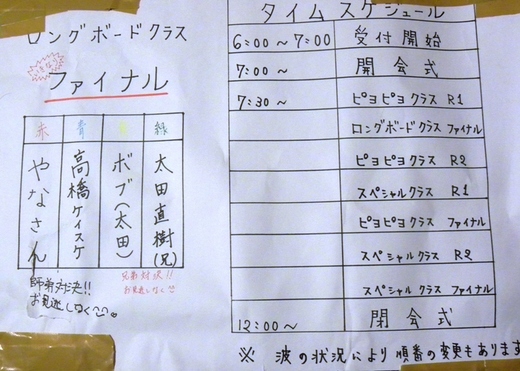 ロングボードクラス
いきなり
ファイナル
赤
青
黄
緑
やなさん
高橋ケイスケ
ボブ(太田)
太田直樹(兄)
師弟対決!!
お見逃しなく
兄弟対決!!
お見逃しなく
タイムスケジュール
6:00〜7:00 受付開始
7:00〜 開会式
7:30〜 ピヨピヨクラス R1
ロングボードクラス ファイナル
ピヨピヨクラス R2
スペシャルクラス R1
ピヨピヨクラス ファイナル
スペシャルクラス R2
スペシャルクラス ファイナル
12:00〜 閉会式
※ 波の状況により順番の変更もあります